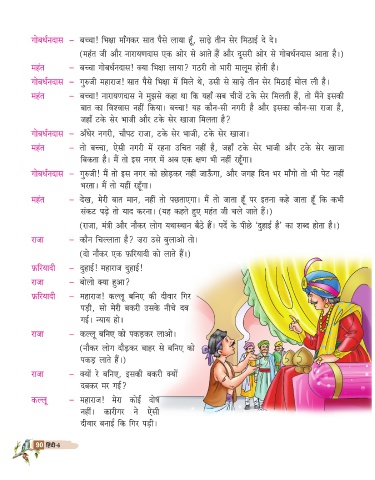 गोबर्धनदास – बच्चा! भिक्षा माँगकर सात पैसे लाया हूँ, साढ़े तीन सेर मिठाई दे दे।
(महंत जी और नारायणदास एक ओर से आते हैं और दूसरी ओर से गोबर्धनदास आता है।)
महंत – बच्चा गोबर्धनदास! क्या भिक्षा लाया? गठरी तो भारी मालूम होती है।
गोबर्धनदास – गुरुजी महाराज! सात पैसे भिक्षा में मिले थे, उसी से साढ़े तीन सेर मिठाई मोल ली है।
महंत – बच्चा! नारायणदास ने मुझसे कहा था कि यहाँ सब चीजें टके सेर मिलती हैं, तो मैंने इसकी
बात का विश्वास नहीं किया। बच्चा! यह कौन-सी नगरी है और इसका कौन-सा राजा है,
जहाँ टके सेर भाजी और टके सेर खाजा मिलता है?
गोबर्धनदास – अँधेर नगरी, चौपट राजा, टके सेर भाजी, टके सेर खाजा।
महंत – तो बच्चा, ऐसी नगरी में रहना उचित नहीं है, जहाँ टके सेर भाजी और टके सेर खाजा
बिकता है। मैं तो इस नगर में अब एक क्षण भी नहीं रहूँगा।
गोबर्धनदास – गुरुजी! मैं तो इस नगर को छोड़कर नहीं जाऊँगा, और जगह दिन भर माँगो तो भी पेट नहीं
भरता। मैं तो यहीं रहूँगा।
महंत – देख, मेरी बात मान, नहीं तो पछताएगा। मैं तो जाता हूँ पर इतना कहे जाता हूँ कि कभी
संकट पड़े तो याद करना। (यह कहते हुए महंत जी चले जाते हैं।)
(राजा, मंत्री और नौकर लोग यथास्थान बैठे हैं। पर्दे के पीछे 'दुहाई है' का शब्द होता है।)
राजा – कौन चिल्लाता है? ज़रा उसे बुलाओ तो।
(दो नौकर एक फ़रियादी को लाते हैं।)
फ़रियादी – दुहाई! महाराज दुहाई!
राजा – बोलो क्या हुआ?
फ़रियादी – महाराज! कल्लू बनिए की दीवार गिर
पड़ी, सो मेरी बकरी उसके नीचे दब
गई। न्याय हो।
राजा – कल्लू बनिए को पकड़कर लाओ।
(नौकर लोग दौड़कर बाहर से बनिए को
पकड़ लाते हैं।)
राजा – क्यों रे बनिए, इसकी बकरी क्यों
दबकर मर गई?
कल्लू – महाराज! मेरा कोई दोष
नहीं। कारीगर ने ऐसी
दीवार बनाई कि गिर पड़ी।
90 हिंदी-6